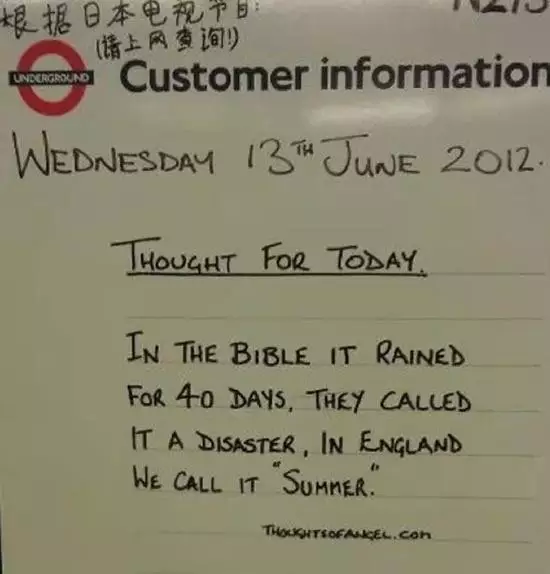 根据日本电视节目:
(请上网查询!)
UNDERGROUND
Customer information
WEDNESDAY 13TH JUNE 2012.
THOUGHT FOR TODAY.
IN THE BIBLE IT RAINED
FOR 40 DAYS, THEY CALLED
IT A DISASTER, IN ENGLAND
WE CALL IT "SUMMER."
THOUGHTSOFANGEL.COM